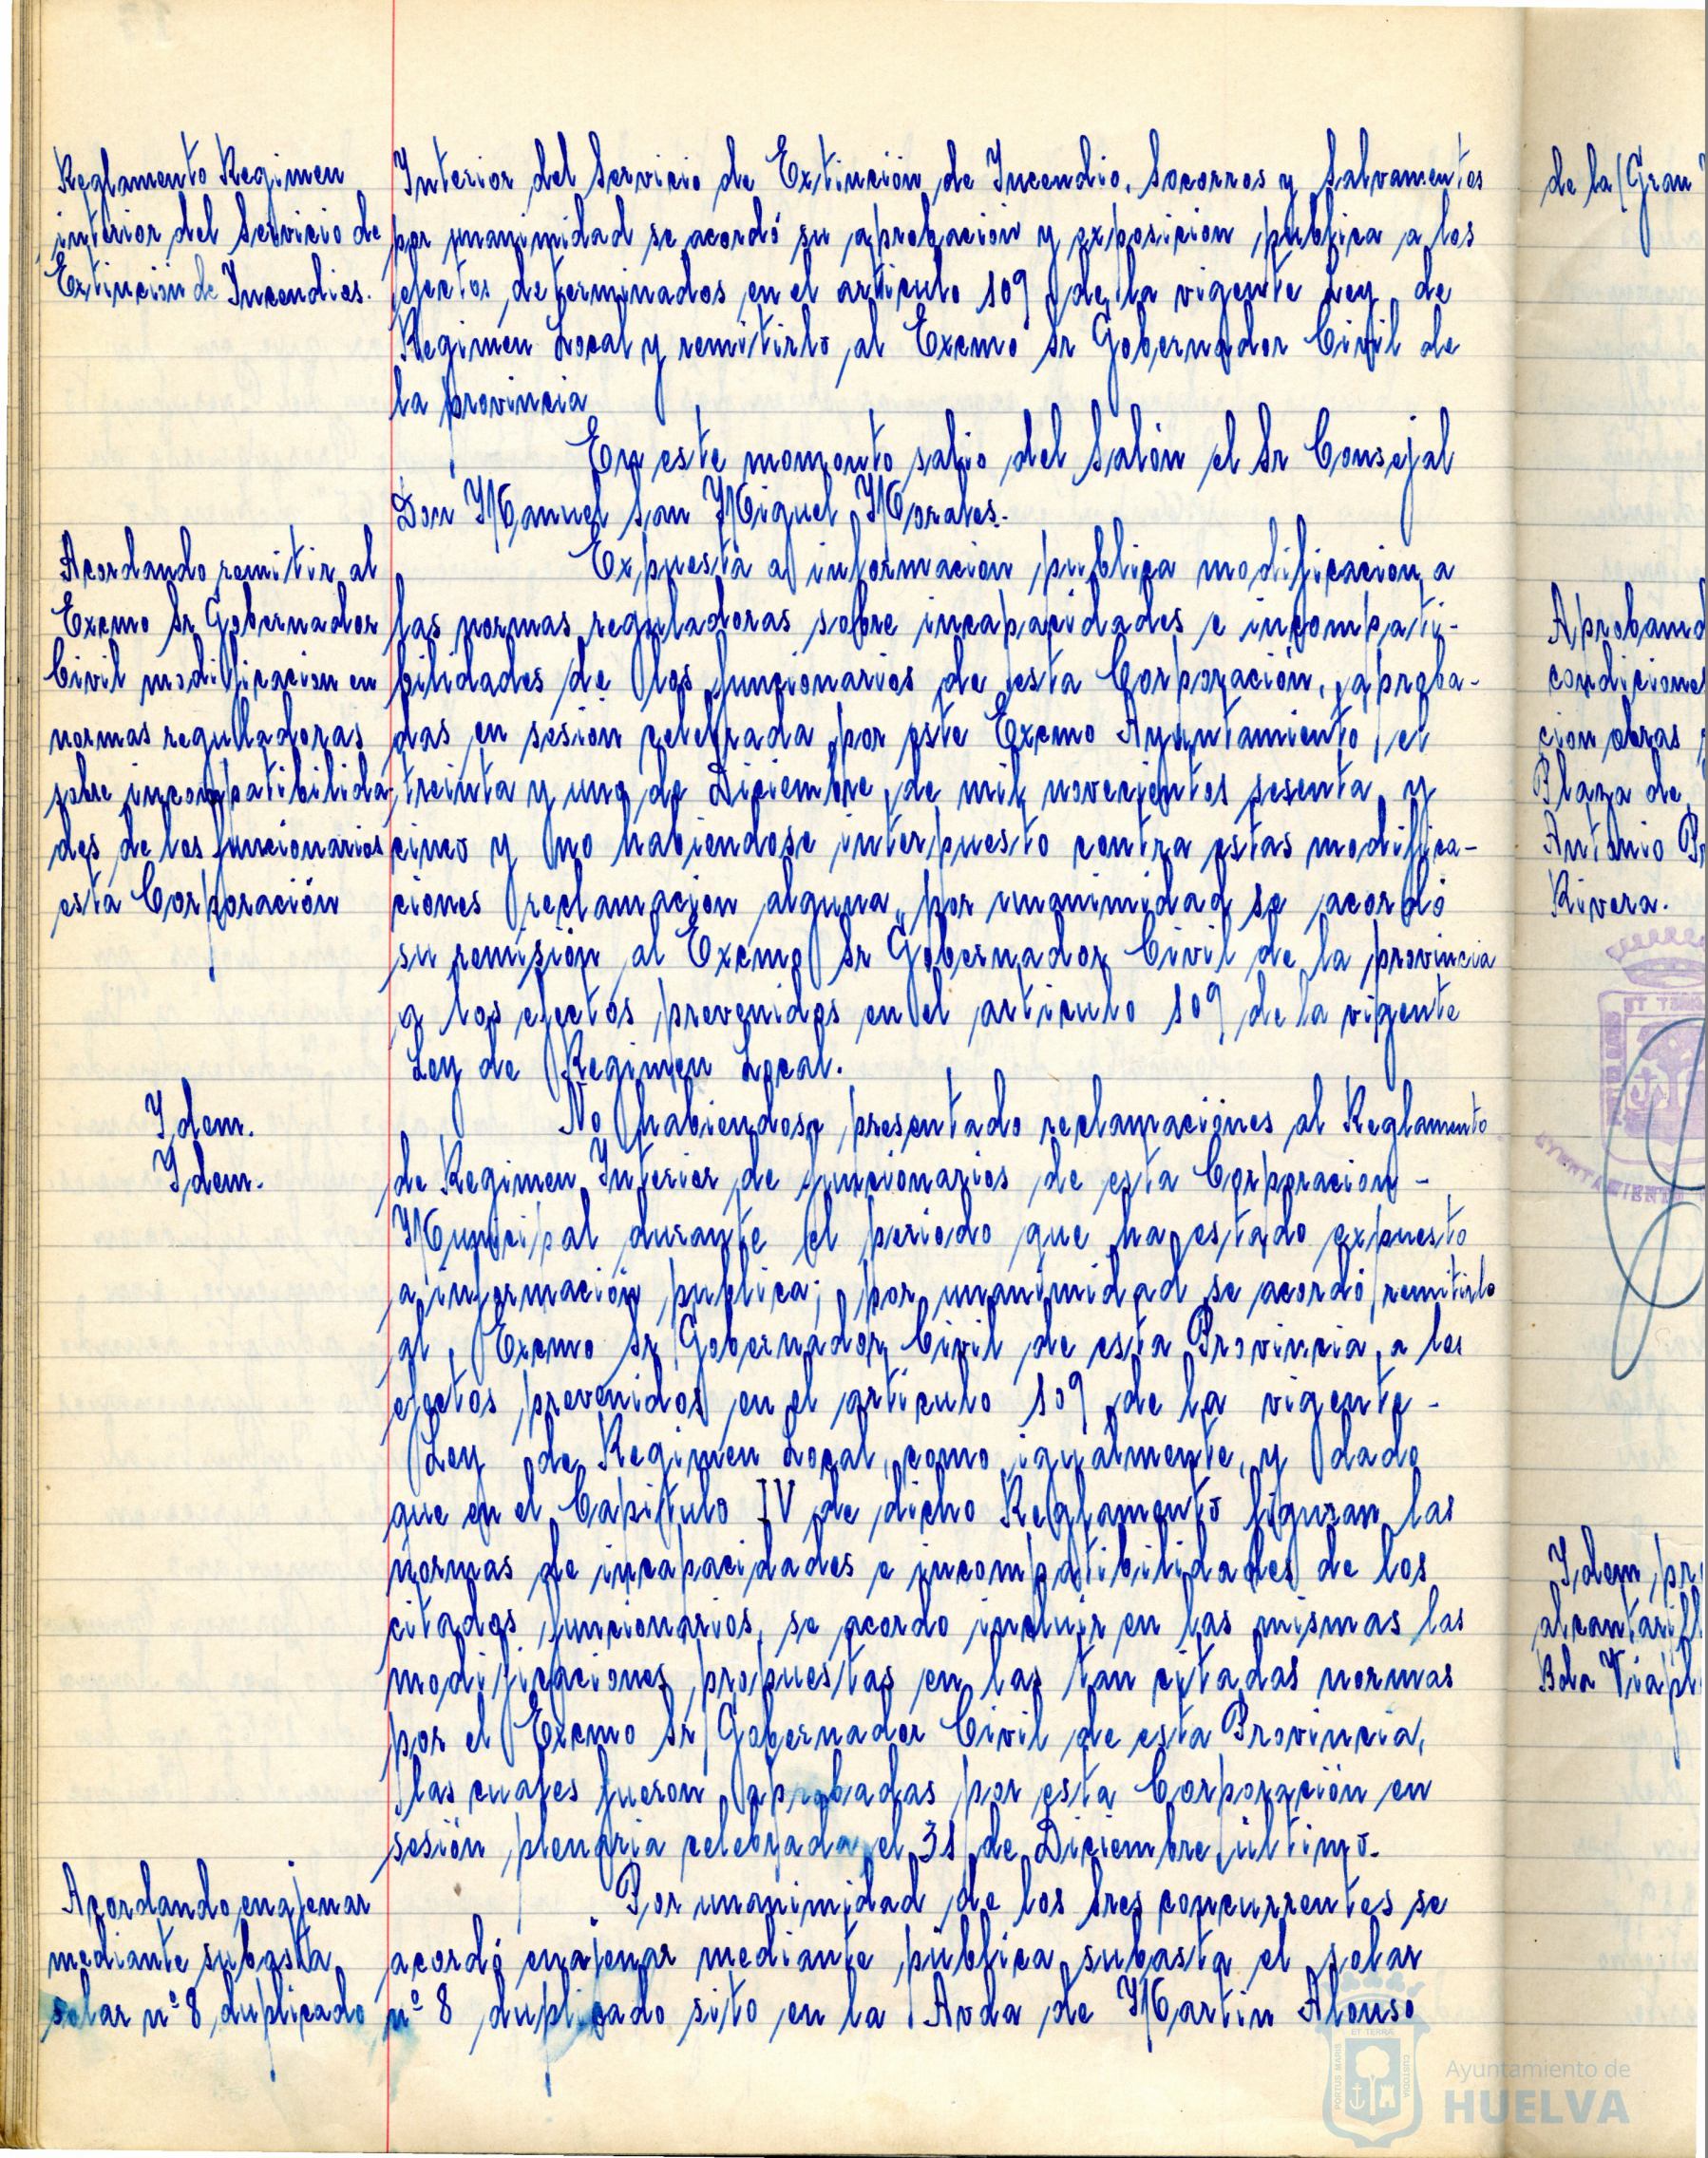 Reglamento Regimen
interior del Servicio de
Extinción de Incendios.
Interior del Servicio de Extinción de Incendio, Socorros y Salvamentos
por unanimidad se acordó su aprobación y exposicion publica a los
efectos determinados en el articulo 109 de la vigente Ley de
Regimen Local y remitirlo al Excmo Sr Gobernador Civil de
la provincia
En este momento salio del Salón el Sr Consejal
Don Manuel San Miguel Morales.
Acordando remitir al
Excmo Sr Gobernador
Civil modificacion en
normas reguladoras
sobre incompatibilida
des de los funcionarios
esta Corporación
Expuesta a información publica modificacion a
las normas reguladoras sobre incapacidades e incompati-
bilidades de los funcionarios de esta Corporación, aproba-
das en sesión celebrada por este Excmo Ayuntamiento el
treinta y uno de Diciembre de mil novecientos sesenta y
cinco y no habiendose interpuesto contra estas modifica-
ciones reclamación alguna, por unanimidad se acordó
su remisión al Excmo Sr Gobernador Civil de la provincia
a los efectos prevenidos en el articulo 109 de la vigente
Ley de Regimen Local.
Idem.
Idem.
No habiendose presentado reclamaciones al Reglamento
de Regimen Interior de funcionarios de esta Corporacion -
Municipal durante el periodo que ha estado expuesto
a información publica; por unanimidad se acordó remitirlo
al Excmo Sr Gobernador Civil de esta Provincia a los
efectos prevenidos en el articulo 109 de la vigente -
Ley de Regimen Local, como igualmente, y dado
que en el Capitulo IV de dicho Reglamento figuran las
normas de incapacidades e incompatibilidades de los
citados funcionarios, se acordo incluir en las mismas las
modificaciones propuestas en las tan citadas normas
por el Excmo Sr Gobernador Civil de esta Provincia,
las cuales fueron aprobadas por esta Corporación en
sesión plenaria celebrada el 31 de Diciembre último.
Acordando enajenar
mediante subasta
solar nº 8 duplicado
Por unanimidad de los Sres concurrentes se
acordó enajenar mediante pública subasta el solar
nº 8 duplicado sito en la Avda de Martin Alonso
de la Gran
Aproband
condicione
cion obras
Plaza de
Antonio
Rivera.
Idem pr
alcantarill
Bda Viapl
Ayuntamiento de
HUELVA